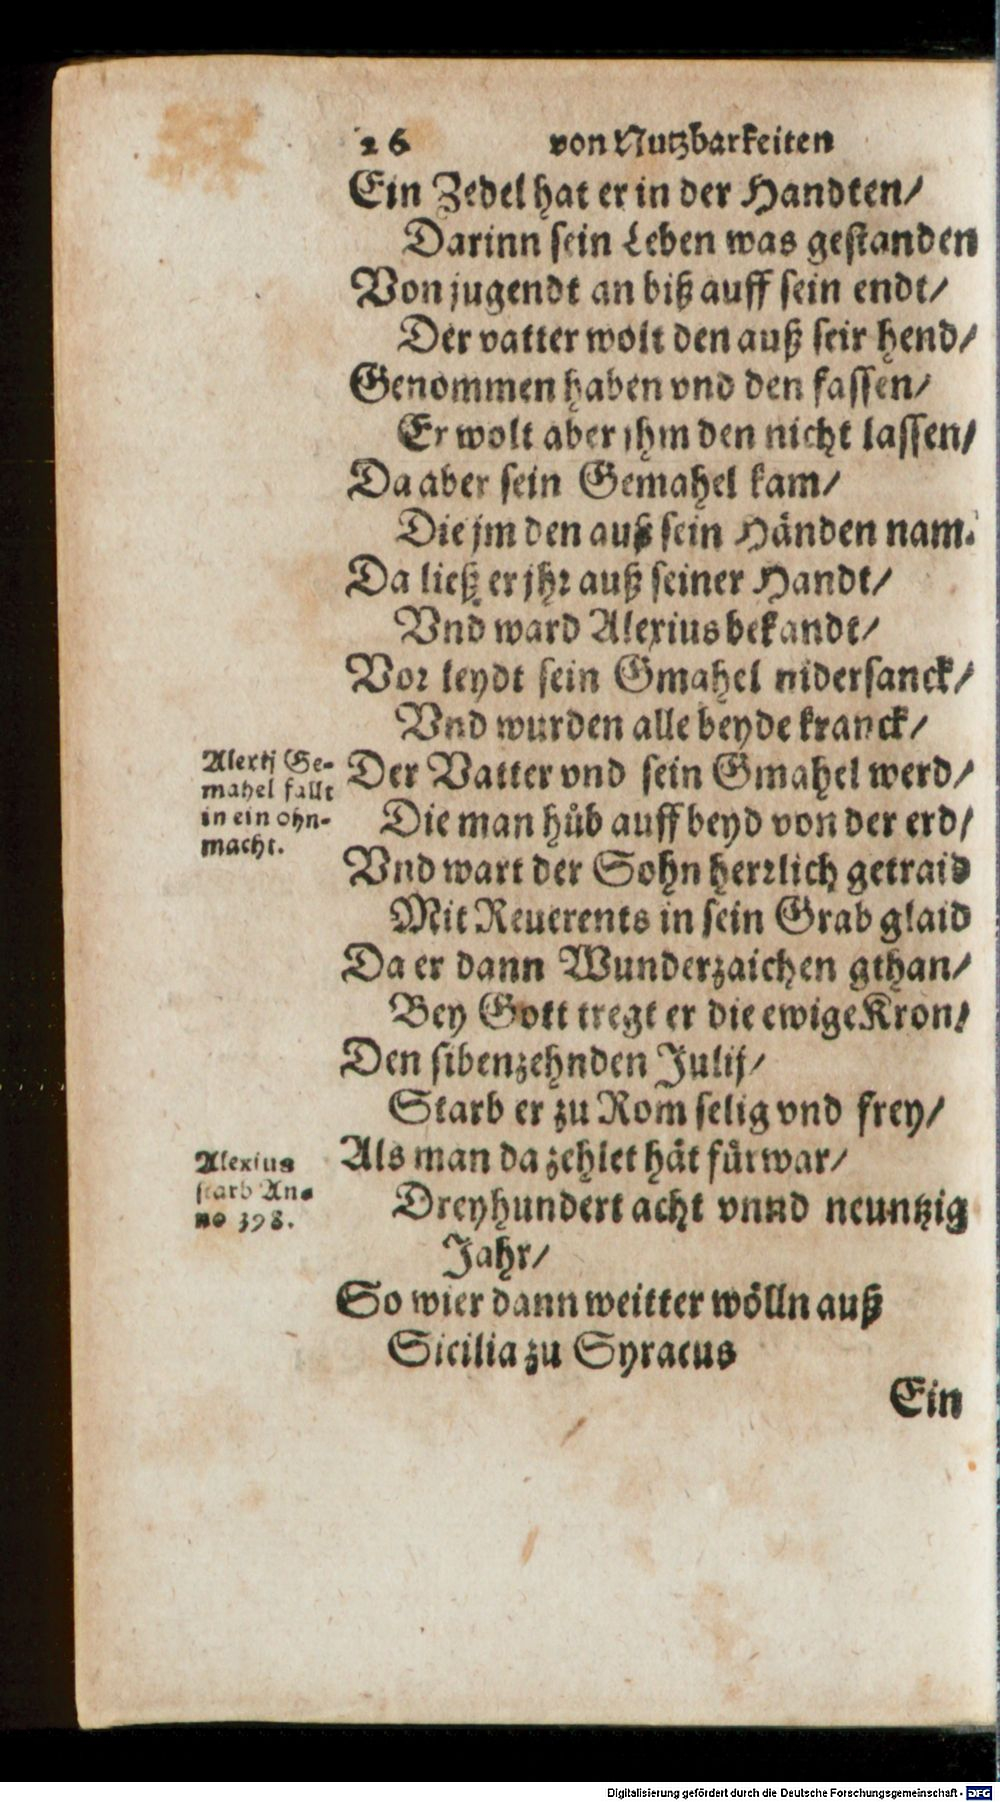 26 von Nutzbarkeiten
Ein Zedel hat er in der Handten/
Darinn sein Leben was gestanden
Von jugendt an biß auff sein endt/
Der vatter wolt den auß seir hend/
Genommen haben vnd den fassen/
Er wolt aber ihm den nicht lassen/
Da aber sein Gemahel kam/
Die jm den auß sein Händen nam.
Da ließ er jhr auß seiner Handt/
Vnd ward Alexius bekandt/
Vor leydt sein Gmahel nidersanck/
Vnd wurden alle beyde kranck/
Alexij Ge-
mahel fallt
in ein ohn-
macht.
Der Vatter vnd sein Gmahel werd/
Die man hůb auff beyd von der erd/
Vnd wart der Sohn herrlich getraid
Mit Reuerents in sein Grab glaid
Da er dann Wunderzaichen gthan/
Bey Gott tregt er die ewige Kron/
Den sibenzehnden Julij/
Starb er zu Rom selig vnd frey/
Alexius
starb An-
no 398.
Als man da zehlet hät fürwar/
Dreyhundert acht vnnd neuntzig
Jahr/
So wier dann weitter wölln auß
Sicilia zu Syracus
Ein
Digitalisierung gefördert durch die Deutsche Forschungsgemeinschaft - DFG